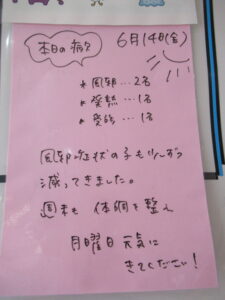 本日の病欠
6月14日(金)
* 風邪…2名
* 発熱…1名
* 発疹…1名
風邪症状の子もずいぶん
減ってきました。
週末も 体調を整え
月曜日 元気に
きてください!